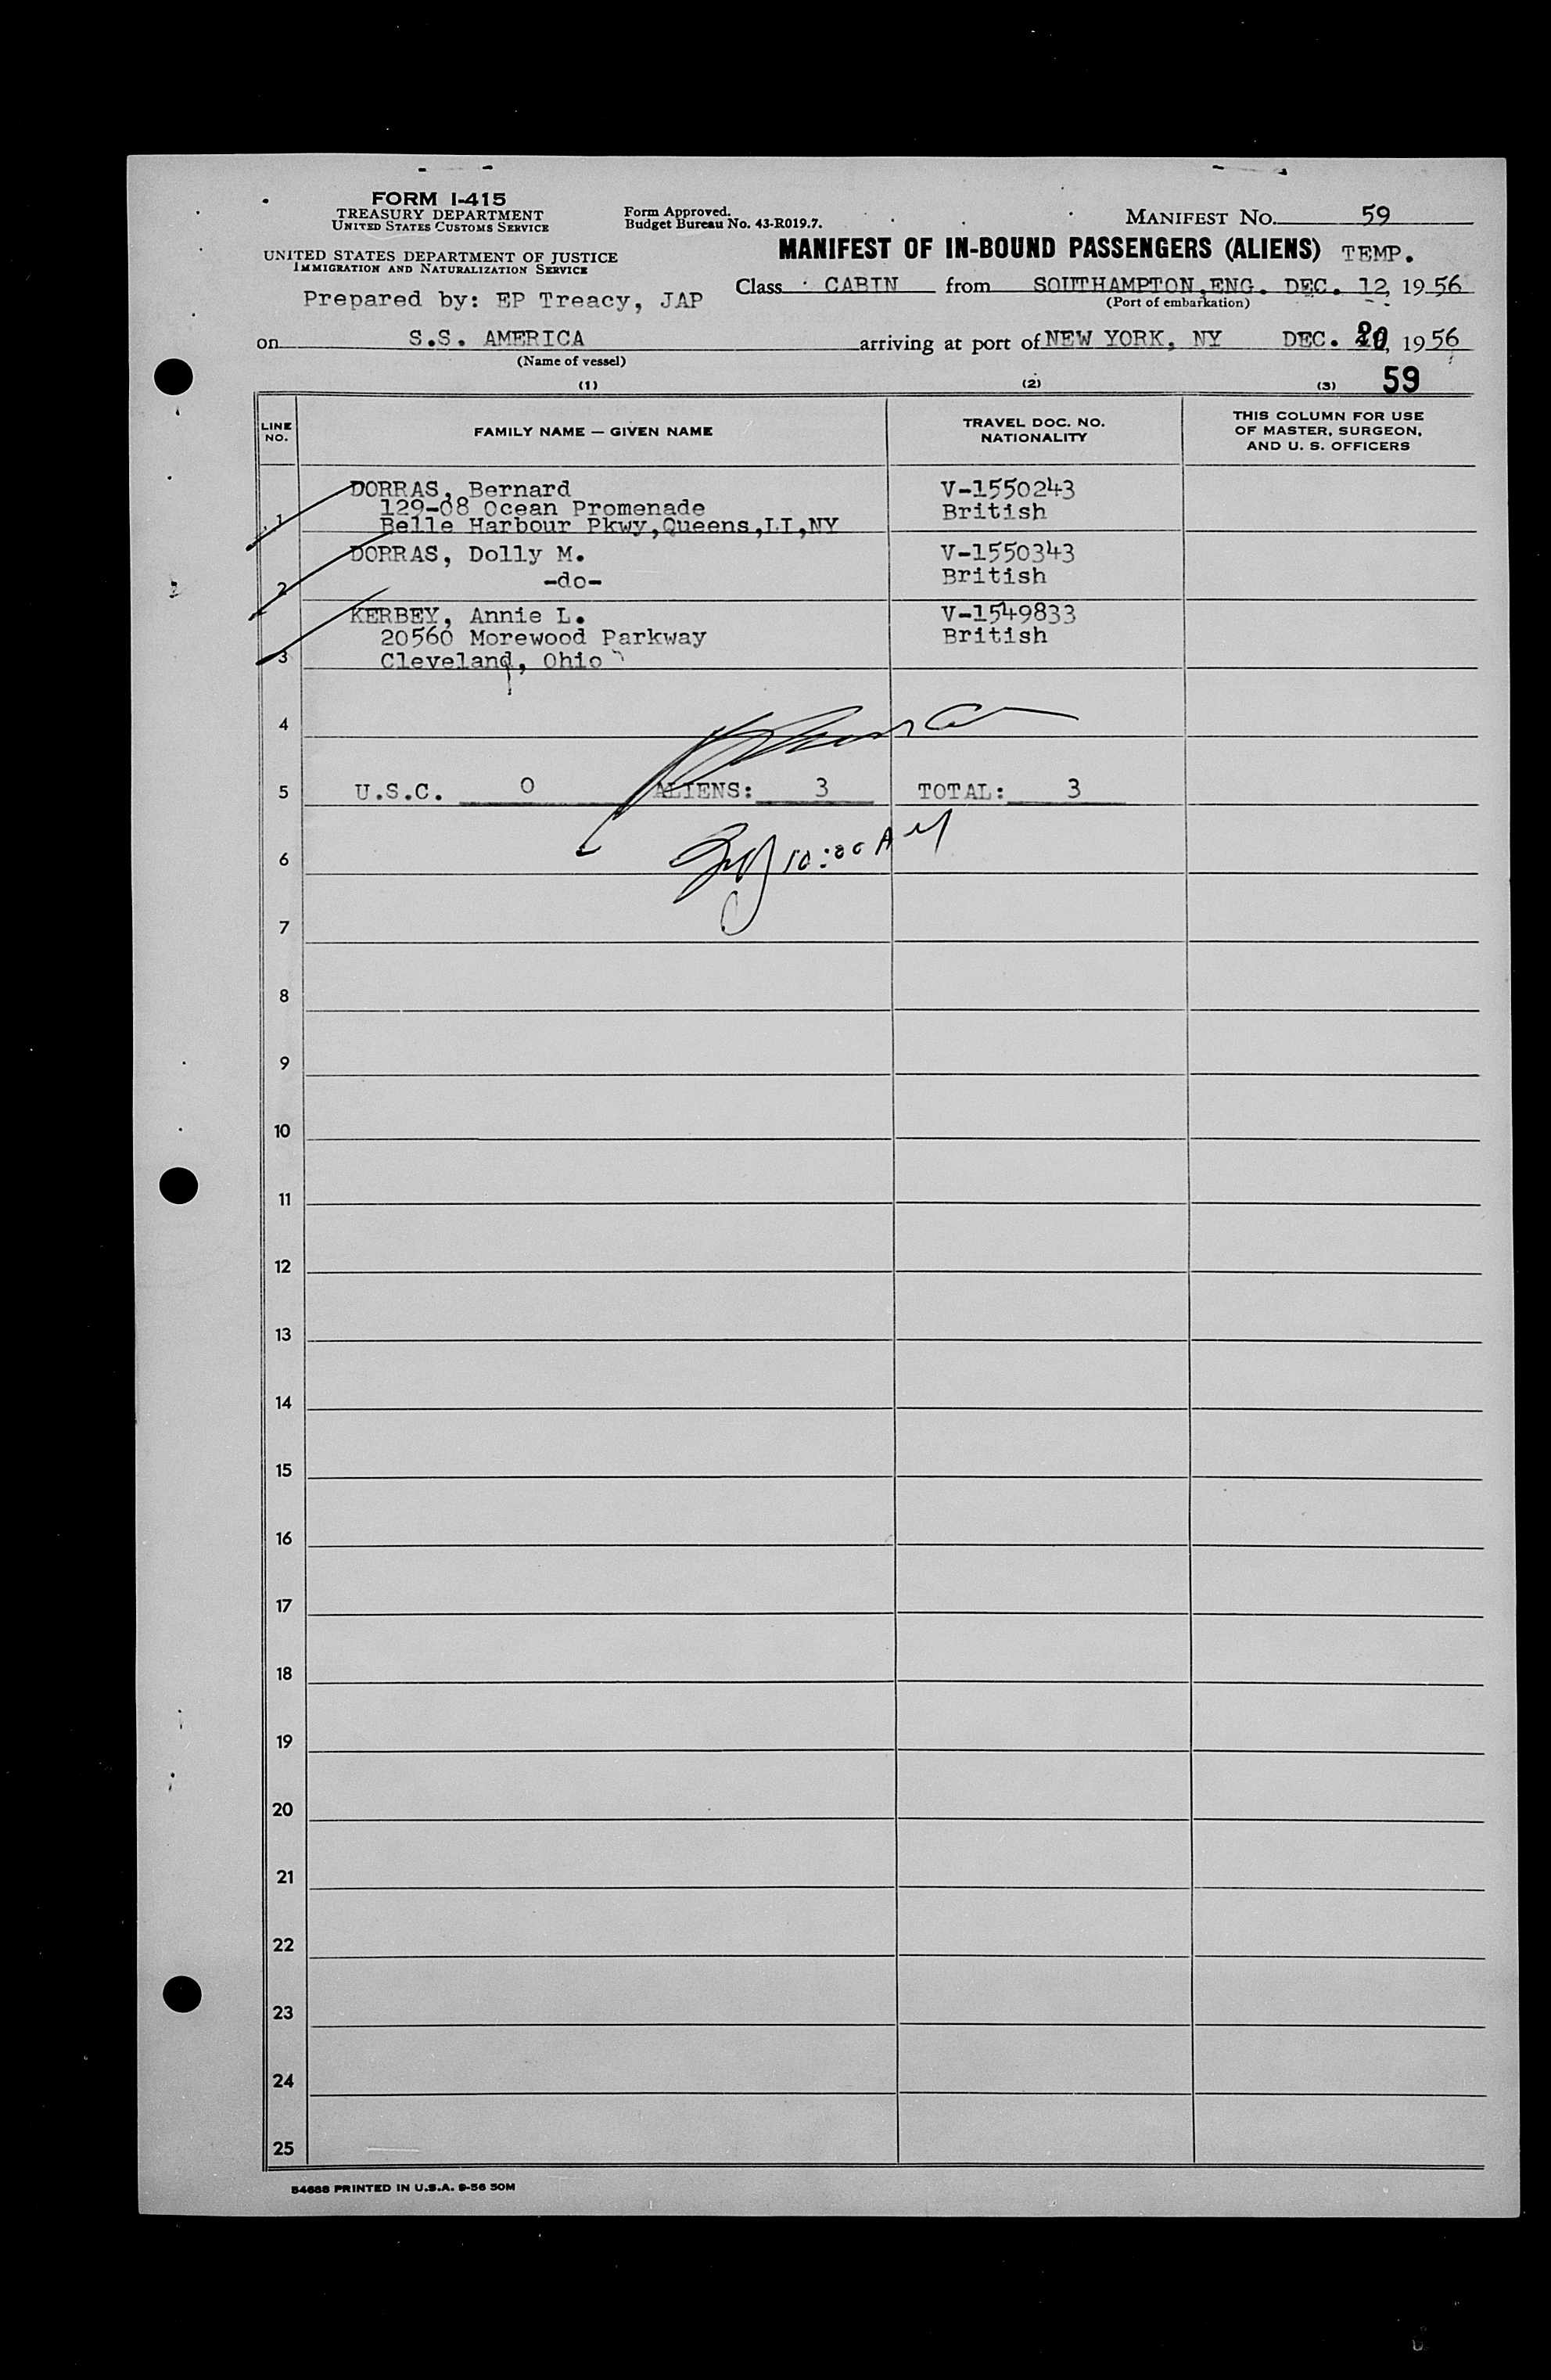 FORM I-415
TREASURY DEPARTMENT
UNITED STATES CUSTOMS SERVICE
Form Approved.
Budget Bureau No. 43-R019.7.
MANIFEST NO. 59
UNITED STATES DEPARTMENT OF JUSTICE
IMMIGRATION AND NATURALIZATION SERVICE
MANIFEST OF IN-BOUND PASSENGERS (ALIENS) TEMP.
Prepared by: EP Treacy, JAP
Class CABIN from SOUTHAMPTON,ENG. DEC. 12, 1956
(Port of embarkation)
on S.S. AMERICA arriving at port of NEW YORK, NY DEC. 20, 1956
(Name of vessel)
59
(1) (2) (3)
LINE NO. FAMILY NAME — GIVEN NAME TRAVEL DOC. NO. NATIONALITY THIS COLUMN FOR USE OF MASTER, SURGEON, AND U. S. OFFICERS
1 DORRAS, Bernard V-1550243
129-08 Ocean Promenade British
Belle Harbour Pkwy,Queens,LI,NY
2 DORRAS, Dolly M. V-1550343
-do- British
3 KERBEY, Annie L. V-1549833
20560 Morewood Parkway British
Cleveland, Ohio
4
5 U.S.C. 0 ALIENS: 3 TOTAL: 3
6 10:00 AM
7
8
9
10
11
12
13
14
15
16
17
18
19
20
21
22
23
24
25
54688 PRINTED IN U.S.A. 9-56 50M